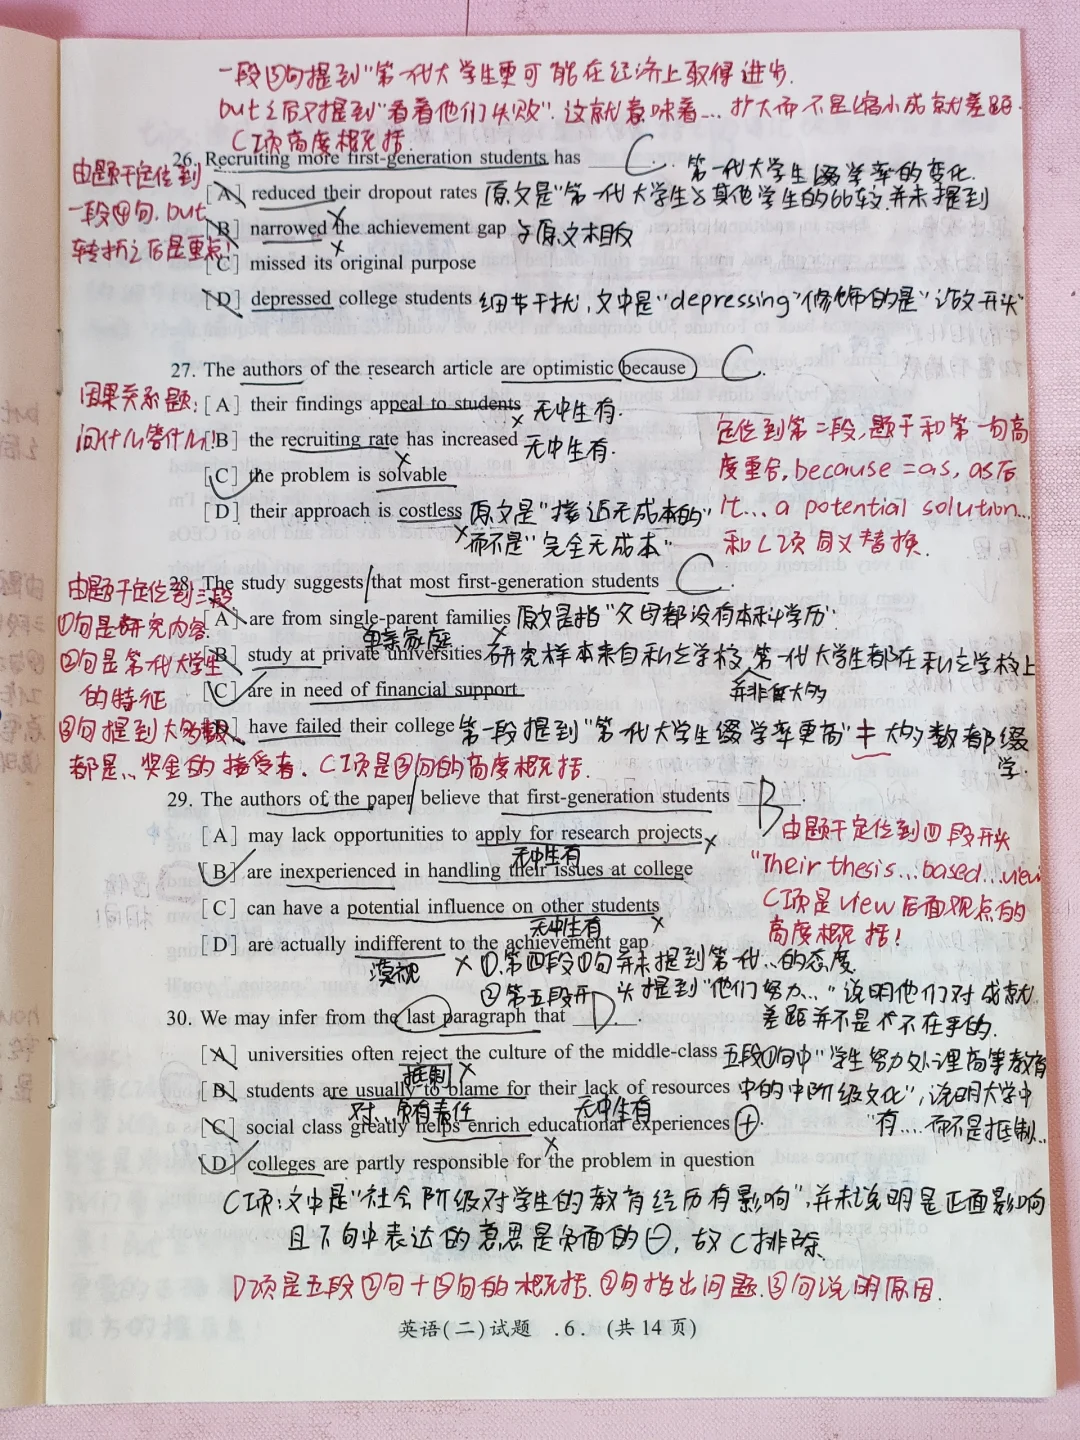 一段④句提到"第一代大学生更可能在经济上取得进步.
but之后又提到"看着他们失败".这就意味着...扩大而不是缩小成就差距.
C项高度概括.
26. Recruiting more first-generation students has C.
由题干定位到
一段④句.but
转折之后是重点
[A] reduced their dropout rates 原文是"第一代大学生与其他学生的比较,并未提到
第一代大学生辍学率的变化.
[B] narrowed the achievement gap 与原文相反
[C] missed its original purpose
[D] depressed college students 细节干扰,文中是"depressing"修饰的是"做开头"
27. The authors of the research article are optimistic because C.
因果关系题:
问什么答什么!
[A] their findings appeal to students 无中生有.
[B] the recruiting rate has increased 无中生有.
[C] the problem is solvable
[D] their approach is costless 原文是"接近无成本的"
而不是"完全无成本"
定位到第二段,题干和第一句高
度重合,because=as,as后
It...a potential solution...
和C项同义替换.
28. The study suggests that most first-generation students C.
由题干定位到三段
①句是研究内容.
②句是第一代大学生
的特征
③句提到大多数
都是...奖金的接受者.C项是③句的高度概括.
[A] are from single-parent families 原文是指"父母都没有本科学历".
单亲家庭
[B] study at private universities 研究样本来自私立学校,第一代大学生都在私立学校上
并非每大的
[C] are in need of financial support
[D] have failed their college 第一段提到"第一代大学生辍学率更高"≠大多数都辍
学.
29. The authors of the paper believe that first-generation students B.
[A] may lack opportunities to apply for research projects
无中生有
[B] are inexperienced in handling their issues at college
[C] can have a potential influence on other students
无中生有
[D] are actually indifferent to the achievement gap
漠视
由题干定位到四段开头
"Their thesis...based...view
C项是view后面观点的
高度概括!
①.第四段①句并未提到第一代...的态度
②第五段开头提到"他们努力..."说明他们对成就
差距并不是不在乎的.
30. We may infer from the last paragraph that D.
[A] universities often reject the culture of the middle-class 五段①句中"学生努力处理高等教育
抵制
[B] students are usually to blame for their lack of resources 中的中阶级文化",说明大学中
对...负有责任 无中生有
[C] social class greatly helps enrich educational experiences ⊕. "有...而不是抵制...
[D] colleges are partly responsible for the problem in question
C项:文中是"社会阶级对学生的教育经历有影响",并未说明是正面影响
且下句中表达的意思是负面的⊖,故C排除.
D项是五段②句+③句的概括.②句指出问题.③句说明原因.
英语(二)试题 .6. (共14页)